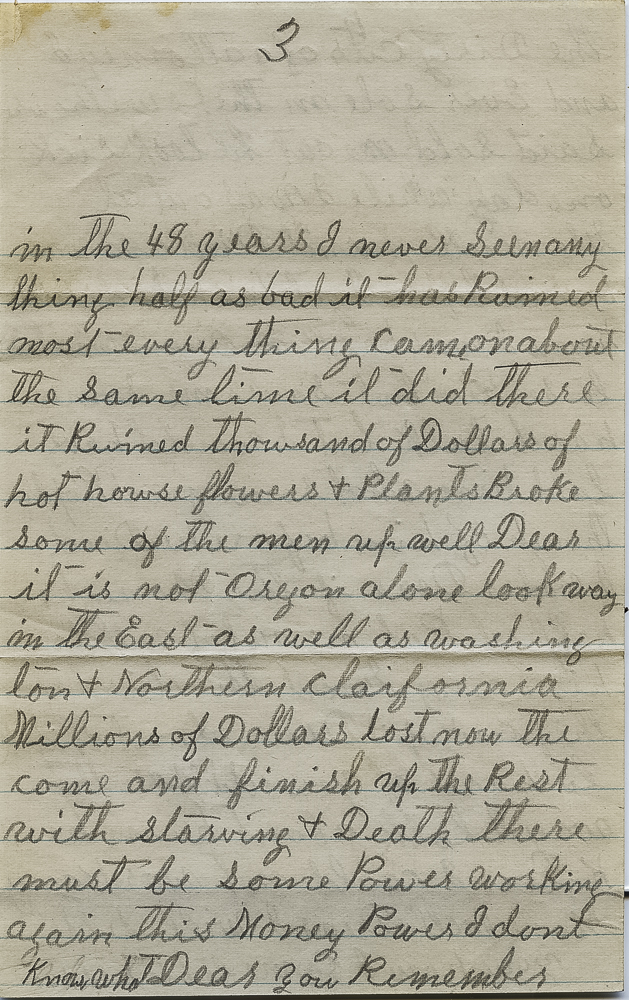 3
in the 48 years I never Seen any
thing half as bad it has Ruined
most every thing Cam on about
the same time it did there
it Ruined thowsand of Dollars of
hot howse flowers & Plants Broke
some of the men up well Dear
it is not Oregon alone look way
in the East as well as washing
ton & Northern Claifornia
Millions of Dollars lost now the
come and finish up the Rest
with starving & Death there
must be some Power working
again this Money Power I dont
Know what Dear you Remember